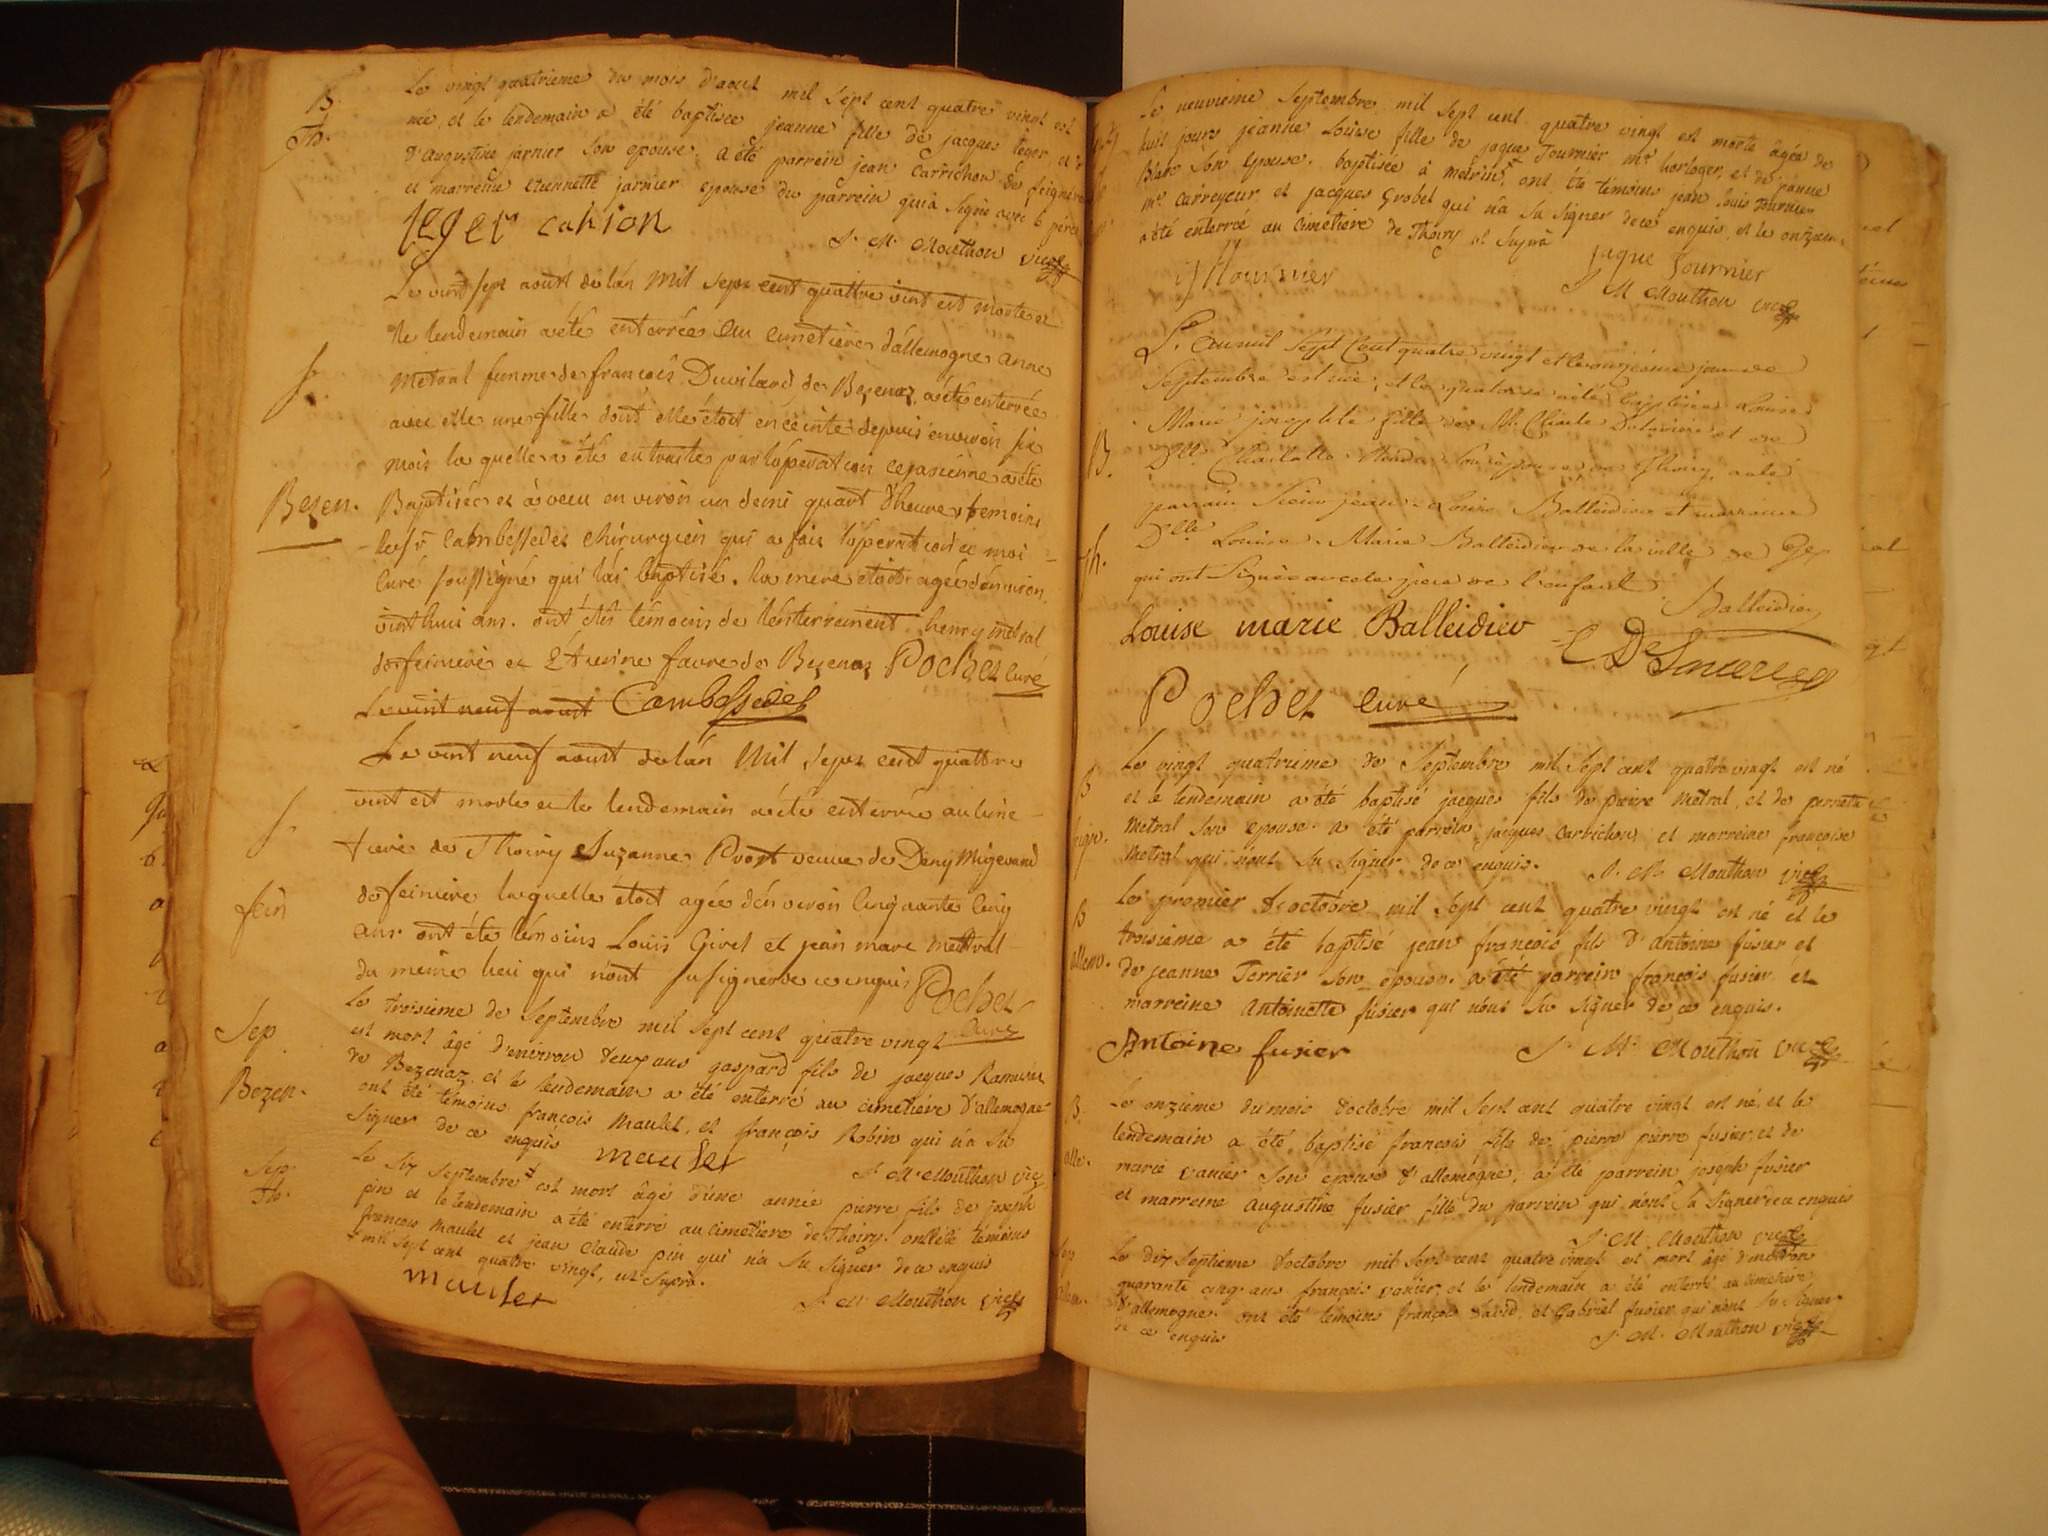 B.
Th.
Le vingt quatrieme du mois d'aout mil sept cent quatre vingt est
née, et le lendemain a été baptisée jeanne fille de jacques leger et d
d'augustine jarnier son epouse; a été parrein jean Carrichon de feigniere
et marreine etiennette jarnier epouse du parrein qui a signé avec le père
leger cahion
J. M. Mouthon vic
Le vint sept aoust de lán mil sept cent quattre vint est morte et
le lendemain a été enterrée au cimetière dállemogne anne
metral femme de francois Duvilard de Bezenaz, a été enterrée
avec elle une fille dont elle étoit enceinte depuis environ six
mois la quelle a été extraite par lopération cesarienne a été
Bezen.
Baptisée et à vecu environ un demi quart d'heure, temoins
le sr Cambessedes chirurgien qui a fait lopération et moi
curé soussigné qui lái baptisé. la mere etoit agée dénviron
vint huit ans. ont étés témoins de lénterrement henry metral
de feiniere et Etienne favre de Bezenaz Pochet curé
Le vint neuf aoust Cambessedes
Le vint neuf aoust de lán mil sept cent quattre
vint est morte et le lendemain a été enterrée au cime-
tiere de Thoiry Suzanne Prost veuve de Deny Migerand
fein
de feiniere laquelle étoit agée dénviron cinquante cinq
ans. ont été témoins Louis Girel et jean marc mettral
du meme lieu qui n'ont su signer de ce enquis Pochet
curé
Sep
Bezen.
Le troisieme de Septembre mil sept cent quatre vingt
est mort âgé d'environ deux ans gaspard fils de jacques
de Bezenaz, et le lendemain a été enterré au cimetiére d'allemogne
ont été témoins françois maulet, et françois Robin qui n'a su
signer de ce enquis maulet
J. M. Mouthon vic
Sep.
Th.
Le six septembre + est mort âgé d'une année pierre fils de joseph
pin et le lendemain a été enterré au cimetiere de Thoiry. ont été témoins
francois maulet et jean claude pin qui n'a su signer de ce enquis
+ mil sept cent quatre vingt, ut supra.
maulet
J. M. Mouthon vic
Le neuvieme Septembre mil sept cent quatre vingt est morte âgée de
huit jours jeanne Louise fille de jaque Tournier mr horloger, et de jeanne
Blanc son epouse. baptisée à meirin, ont été témoins jean louis Tournier
mr carreyeur et jacques Grobel qui n'a su signer de ce enquis, et le onzieme
a été enterrée au cimetiere de Thoiry ut supra
jaque Tournier
J M Mouthon vic
L'an mil sept Cent quatre vingt et le onzieme jour de
Septembre est née, et le quatorze a été baptisée Louise
Marie josephte fille de Mr Charle
B.
Dlle Charlotte son épouse, de Thoiry, a été
parrain Sieur jean Louis Balleidier et marraine
Dlle Louise Marie Balleidier de la ville de Gex
Th.
qui ont signé avec le pere de l'enfant. Balleidier
Louise marie Balleidier
Pochet curé
B
Le vingt quatrieme de Septembre mil sept cent quatre vingt est né
et le lendemain a été baptisé jacques fils de pierre metral, et de pernette
metral son epouse. a été parrein jacques Carrichon, et marreine françoise
metral qui n'ont su signer de ce enquis. J. M. Mouthon vic
B
allem.
Le premier d'octobre mil sept cent quatre vingt est né et le
troisieme a été baptisé jean françois fils d'antoine fusier et
de jeanne Terrier son epouse. a été parrein françois fusier et
marreine antoinette fusier qui n'ont su signer de ce enquis.
Antoine fusier
J. M. Mouthon vic
B.
alle.
Le onzieme du mois d'octobre mil sept cent quatre vingt est né, et le
lendemain a été baptisé françois fils de pierre pierre fusier, et de
marie vanier son epouse d'allemogne, a été parrein joseph fusier
et marreine augustine fusier fille du parrein qui n'ont su signer de ce enquis
J. M. Mouthon vic
Le dix septieme d'octobre mil sept cent quatre vingt est mort âgé d'environ
quarante cinq ans françois vanier, et le lendemain a été enterré au cimetiere
d'allemogne. ont été témoins françois david, et Gabriel fusier qui n'ont su signer
de ce enquis
J. M. Mouthon vic